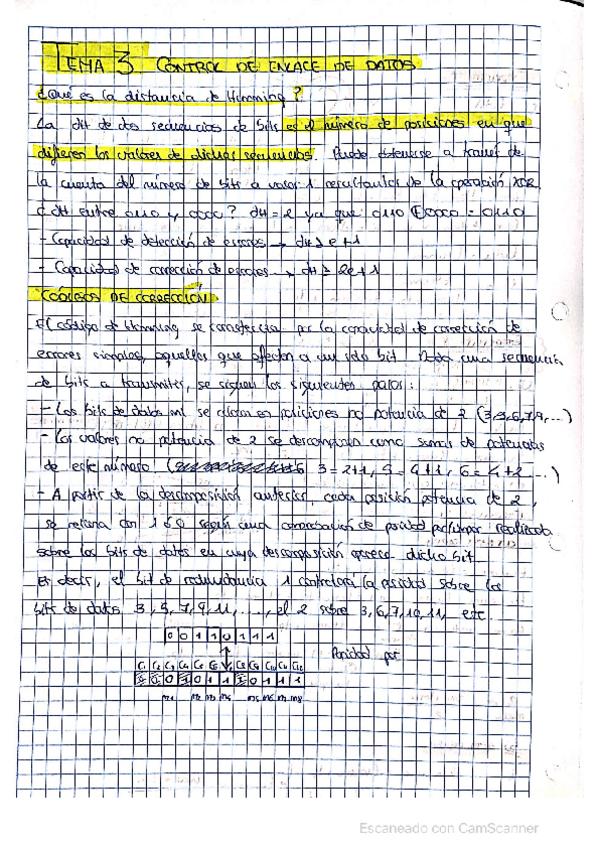 TEMA 3 CONTROL DE ENLACE DE DATOS
¿Qué es la distancia de Hamming?
La dH de dos secuencias de bits es el número de posiciones en que
difieren los valores de dichas secuencias. Puede obtenerse a través de
la cuenta del número de bits a valor 1 resultantes de la operación XOR
¿dH entre 0110 y 0000? dH = 2 ya que 0110 ⊕ 0000 = 0110
- Capacidad de detección de errores → dH ≥ e+1
- Capacidad de corrección de errores → dH ≥ 2e+1
CÓDIGOS DE CORRECCIÓN
El código de Hamming se caracteriza por la capacidad de corrección de
errores simples, aquellos que afectan a un solo bit. Dada una secuencia
de bits a transmitir, se siguen los siguientes pasos:
- Los bits de datos se colocan en posiciones no potencia de 2
- Los valores no potencia de 2 se descomponen como sumas de potencias
de este número ( 3=2+1, 5=4+1, 6=4+2 ...)
- A partir de la descomposición anterior, cada posición potencia de 2,
se rellena con 1 ó 0 según una comprobación de paridad par/impar realizada
sobre los bits de datos en cuya descomposición aparece dicho bit
Es decir, el bit de redundancia 1 controlará la paridad sobre los
bits de datos 3, 5, 7, 9, 11, ..., el 2 sobre 3, 6, 7, 10, 11, etc.
0 0 1 1 0 1 1 1
Paridad par
Escaneado con CamScanner